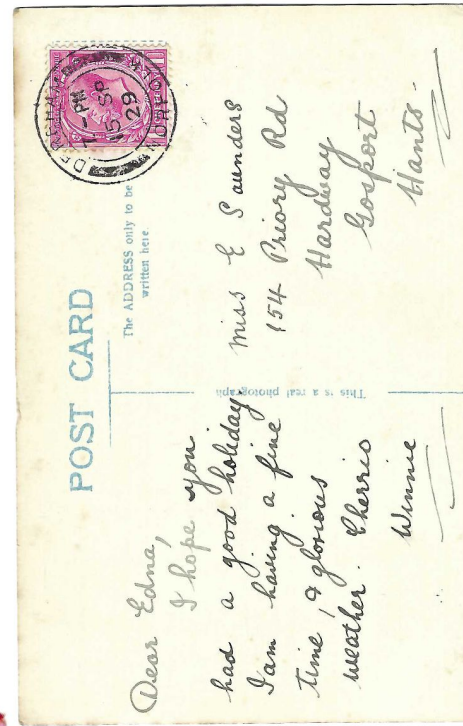 POST CARD
The ADDRESS only to be
written here
This is a real photograph
Dear Edna,
I hope you
had a good holiday.
I am having a fine
time, & glorious
weather. Cherrio
Winnie
Miss E Saunders
154 Priory Rd
Hardway
Gosport
Hants.
7 - PM
15 SP
29
NORFOLK